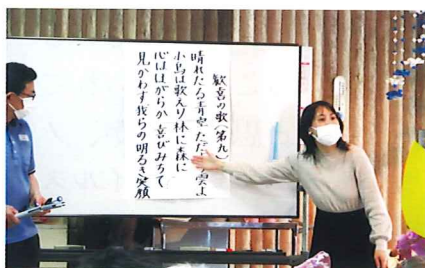 歓喜の歌(第九)
晴れたる青空 雲よ
小鳥は歌えり 林に森に
心はほがらか 喜びみちて
見かわす 我らの明るき笑顔